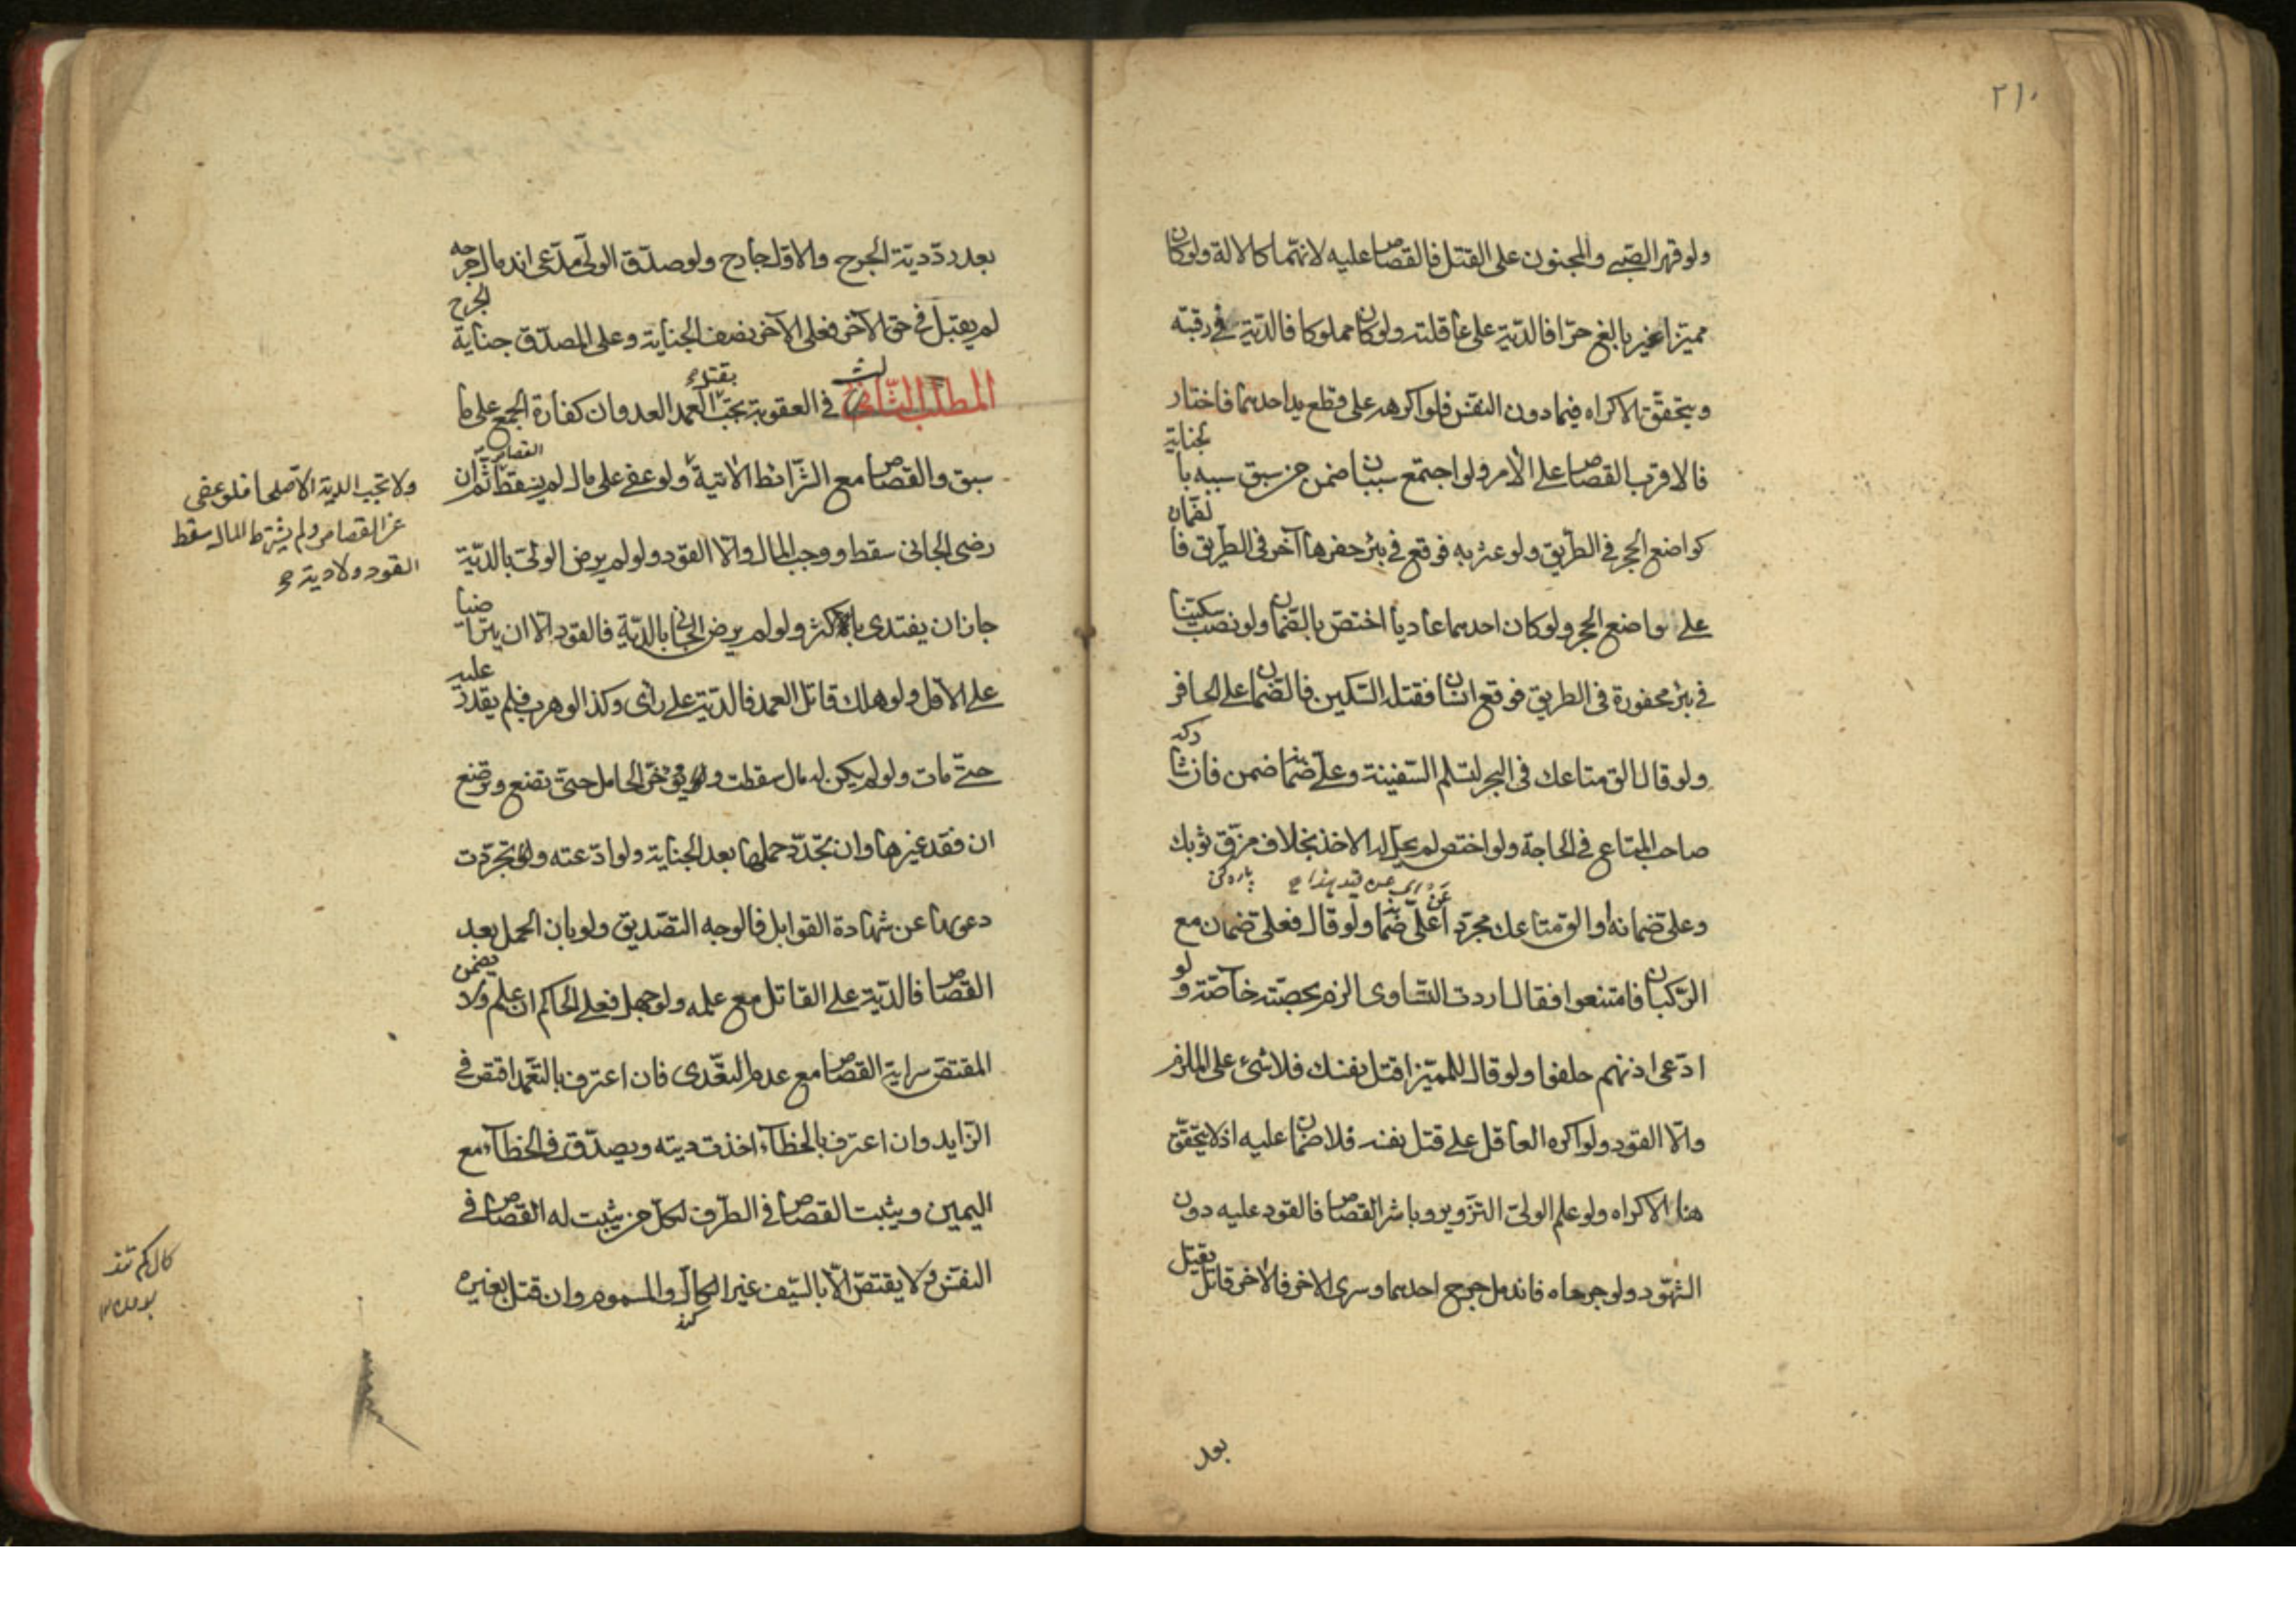 ٢١٠
ولو قهر الصبي والمجنون على القتل فالقصاص عليه لانهما كالالة ولو كان
مميزا غير بالغ حرا فالدية على عاقلته ولو كان مملوكا فالدية في رقبته
ويتحقق الاكراه فيما دون النفس فلو اكرهه على قطع يد احدهما فاختار
فالاقرب القصاص على الآمر ولو اجتمع سببان ضمن من سبق سببه بالجناية
كواضع الحجر في الطريق ولو عثر به فوقع في بئر حفرها آخر في الطريق فالضمان
على واضع الحجر ولو كان احدهما عاديا اختص بالضمان ولو نصب سكينا
في بئر محفورة في الطريق فوقع انسان فقتله السكين فالضمان على الحافر
ولو قال الق متاعك في البحر لتسلم السفينة وعلي ضمانه ضمن فان شاركه
صاحب المتاع في الحاجة ولو اختص لم يحل له الاخذ بخلاف مزق ثوبك
پاره كن
وعلي ضمانه او الق متاعك مجردا عن علي ضمانه ولو قال فعلي ضمان مع
الركبان فامتنعوا فقال اردت التساوي الزم بحصته خاصة ولو
ادعى اذنهم حلفوا ولو قال للمميز اقتل نفسك فلا شيء على الملزم
والا القود ولو اكره العاقل على قتل نفسه فلا ضمان عليه اذ لا يتحقق
هنا الاكراه ولو علم الولي التزوير وباشر القصاص فالقود عليه دون
الشهود ولو جرحاه فاندمل جرح احدهما وسرى الاخر فالاخر قاتل يقتل
بعد
بعد رد دية الجرح والاول جارح ولو صدق الولي مدعي اندمال جرحه
لم يقبل في حق الآخر فعلى الآخر نصف الجناية وعلى المصدق جناية الجرح
المطلب الثالث في العقوبة يجب بقتل العمد العدوان كفارة الجمع على ما
سبق والقصاص مع الشرائط الآتية ولو عفى على مال لم يسقط القصاص ثم ان
رضي الجاني سقط ووجب المال والا القود ولو لم يرض الولي بالدية
جاز ان يفتدي بالاكثر ولو لم يرض الجاني بالدية فالقود الا ان يتراضيا
على الاقل ولو هلك قاتل العمد فالدية على رأي وكذا لو هرب فلم يقدر عليه
حتى مات ولو لم يكن له مال سقطت ويؤخر الحامل حتى تضع وترضع
ان فقد غيرها وان تجدد حملها بعد الجناية ولو ادعته وتجردت
دعويها عن شهادة القوابل فالوجه التصديق ولو بان الحمل بعد
القصاص فالدية على القاتل مع علمه ولو جهل فعلى الحاكم ان علم ولا يضمن
المقتص سراية القصاص مع عدم التعدي فان اعترف بالتعمد اقتص في
الزايد وان اعترف بالخطاء اخذت ديته ويصدق في الخطاء مع
اليمين ويثبت القصاص في الطرف لكل من يثبت له القصاص في
النفس ولا يقتص الا بالسيف غير الكال والمسموم وان قتل بغيره
كند
ولا تجب الدية الا صلحا فلو عفى
عن القصاص ولم يشترط المال سقط
القود ولا دية